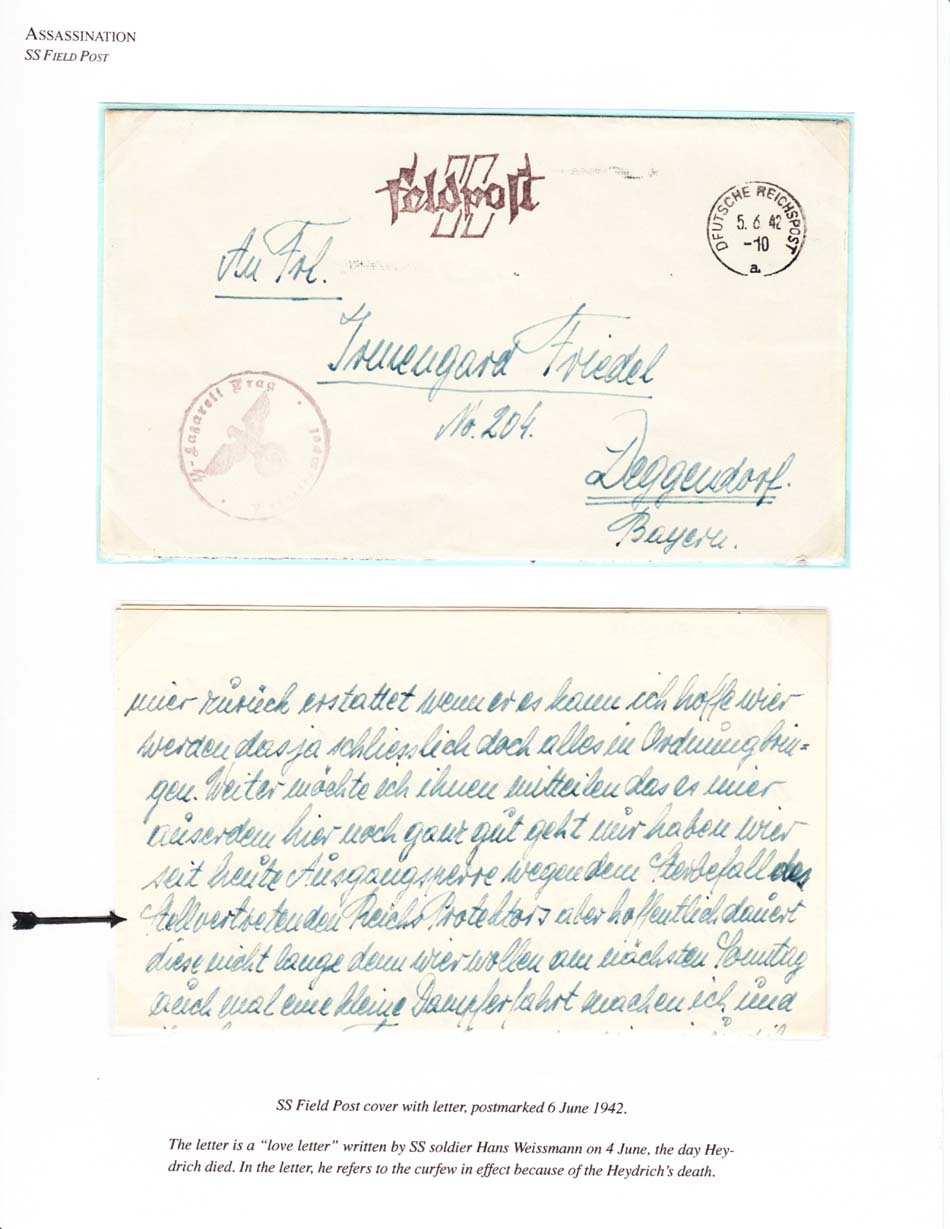 ASSASSINATION
SS FIELD POST
Feldpost
DEUTSCHE REICHSPOST
5. 6 42
-10
a
An Frl.
Irmengard Friedel
No. 204.
Deggendorf.
Bayern.
SS-Lazarett Prag
mier zurück erstattet wenn er es kann ich hoffe wier
werden das ja schliesslich doch alles in Ordnung brin=
gen. Weiter möchte ich ihnen mitteilen das es mier
auserdem hier noch ganz gut geht nur haben wier
seit heute Ausgangsperre wegen dem Sterbefall des
Stellvertretenden Reichs Protektors aber hoffentlich dauert
diese nicht lange denn wier wollen am nächsten Sonntag
auch mal eine kleine Dampferfahrt machen ich und
SS Field Post cover with letter, postmarked 6 June 1942.
The letter is a “love letter” written by SS soldier Hans Weissmann on 4 June, the day Hey-
drich died. In the letter, he refers to the curfew in effect because of the Heydrich’s death.